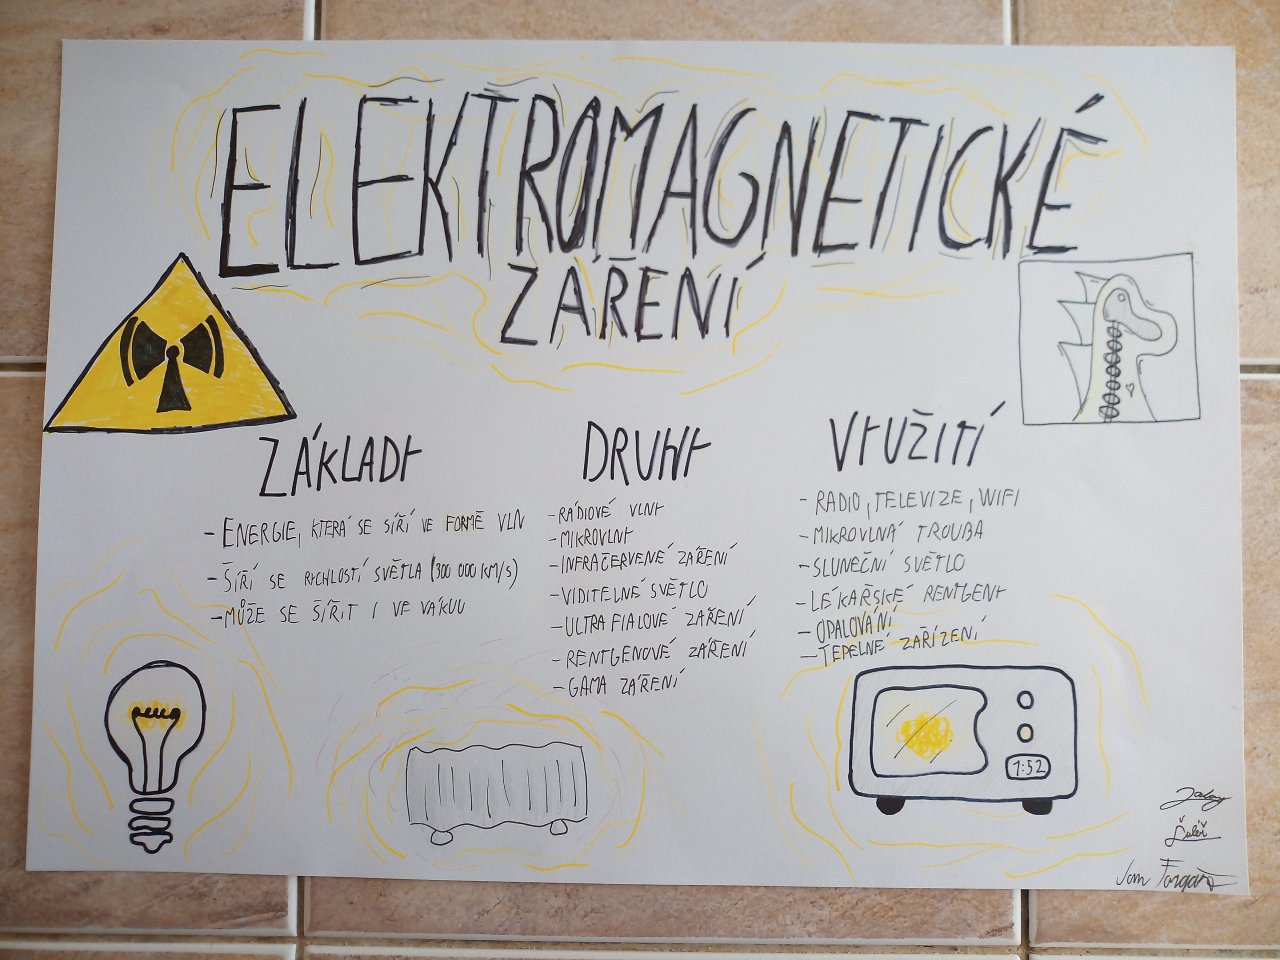 ELEKTROMAGNETICKÉ
ZÁŘENÍ
ZÁKLADY
- ENERGIE, KTERÁ SE ŠÍŘÍ VE FORMĚ VLN
- ŠÍŘÍ SE RYCHLOSTÍ SVĚTLA (300 000 KM/S)
- MŮŽE SE ŠÍŘIT I VE VAKUU
DRUHY
- RÁDIOVÉ VLNY
- MIKROVLNY
- INFRAČERVENÉ ZÁŘENÍ
- VIDITELNÉ SVĚTLO
- ULTRAFIALOVÉ ZÁŘENÍ
- RENTGENOVÉ ZÁŘENÍ
- GAMA ZÁŘENÍ
VYUŽITÍ
- RADIO, TELEVIZE, WIFI
- MIKROVLNÁ TROUBA
- SLUNEČNÍ SVĚTLO
- LÉKAŘSKÉ RENTGENY
- OPALOVÁNÍ
- TEPELNÉ ZAŘÍZENÍ
1:52